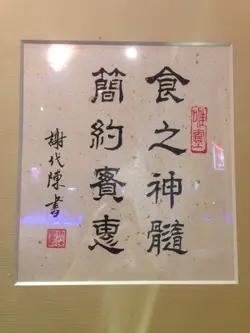 食之神髓
簡約賓惠
謝代陳書